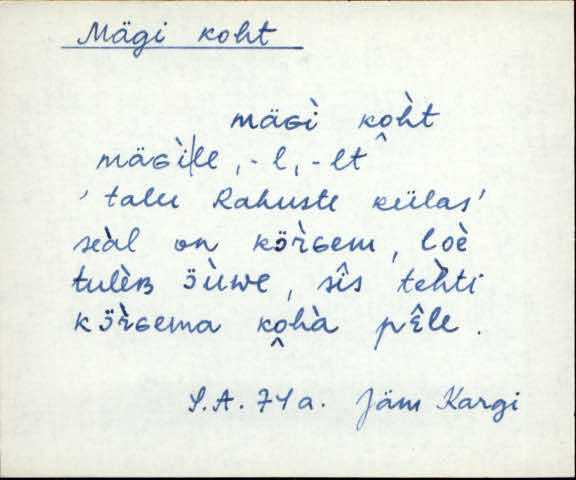 Mägi koht
mäɢì ko̭h̀t
mäɢìlle, -l, -lt
'talu Rahuste külas'
seàl on kö̀rɢem, loè
tulèʙ ö̀ùwe, sîs teh̀ti
kö̀rɢema ko̭hà pêle.
S.A. 71a. Jäm Kargi